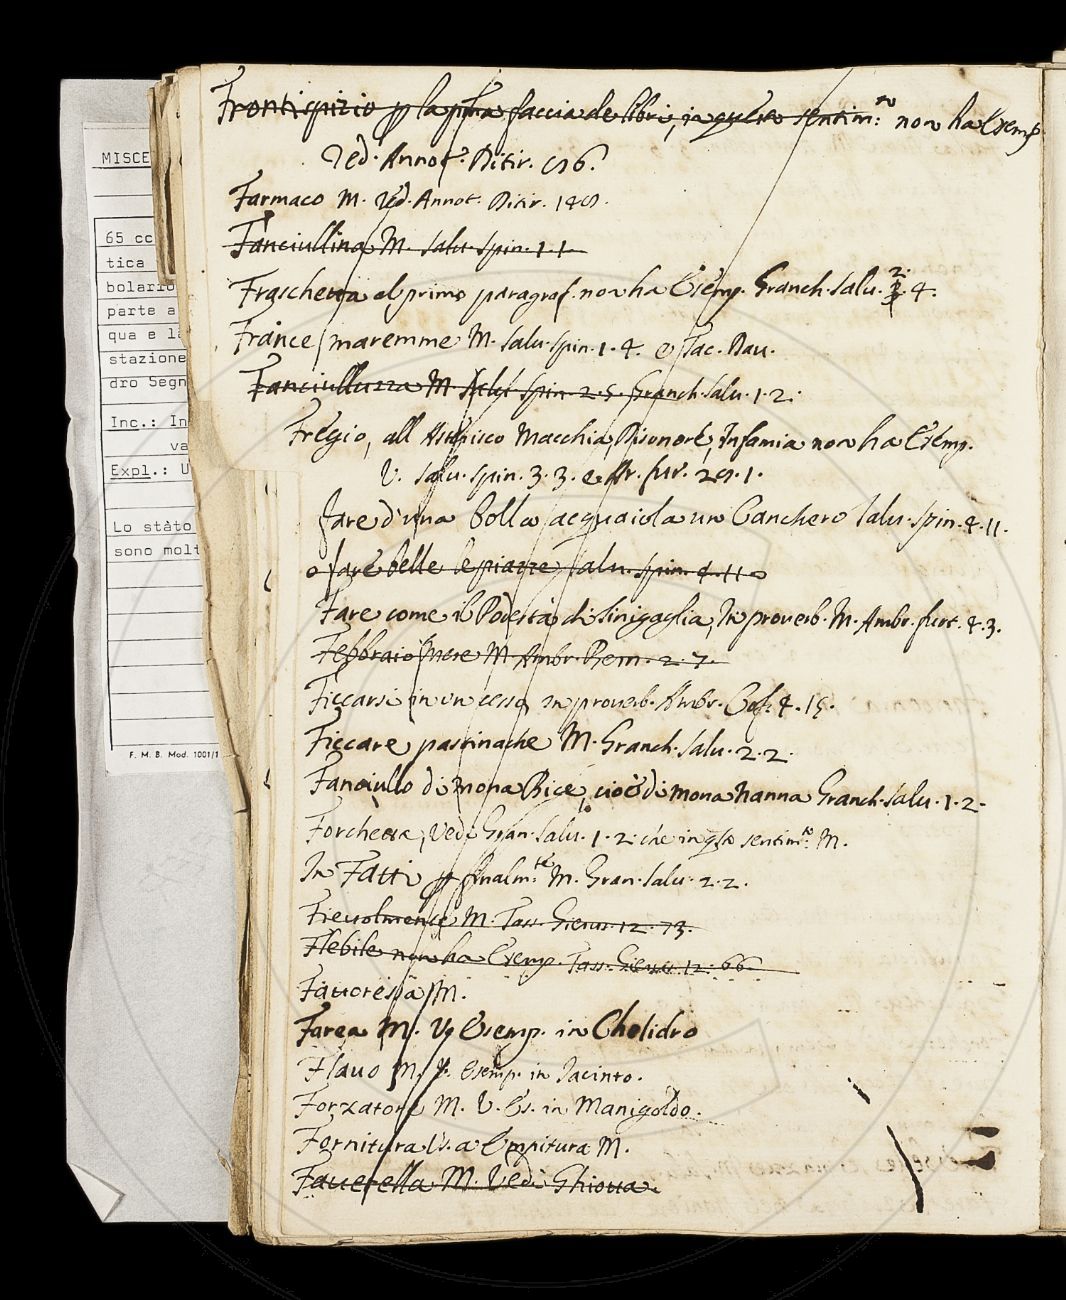 MISCE
65 cc
tica
bolario
parte a
qua e la
stazione
dro Segn
Inc.: In
va
Expl.: U
Lo stàto
sono molt
F. M. B. Mod. 1001/1
Frontispizio p la pma faccia de libri, in qsto sentim:to non ha Esemp
Ved. Annot. Ditir.
Farmaco M. Ved. Annot. Ditir.
Fanciullina M. Salu. Spin. 1. 1
Fraschetta al primo paragraf. non ha Esemp. Granch. Salu. 2. 4.
France maremme M. Salu. Spin. 1. 4. e Tac. Dau.
Fanciullazza M. Salu. Spin. 2. 5. Granch. Salu. 1. 2.
Fregio, all Asterisco Macchia, Disonore, Infamia non ha Esemp.
V. Salu. Spin. 3. 3. e Ar. fur.
fare d'una bolla acquaiola un Canchero Salu. Spin. 4. 11.
o fare belle le piazze Salu. Spin. 4. 11
Fare come il Podestà di Sinigaglia, In prouerb. M. Ambr. furt. 4. 3.
Febbraio Mese M. Ambr. Bern. 2. 7.
Ficcarsi in un cesso in prouerb. Ambr. Cof. 4. 15.
Ficcare pastinache M. Granch. Salu. 2. 2.
Fanciullo di mona Bice, cioè di mona Nanna Granch. Salu. 1. 2.
Forchetta, Vedi Gran. Salu. 1. 2. che in qsto sentim:to M.
In Fatti p finalm:te M. Gran. Salu. 2. 2.
Fieuolmente M. Tass. Gerus. 12. 73.
Flebile non ha Esemp. Tass. Gerus. 12. 66.
Fattoressa M.
Farea M. V. Esemp. in Chelidro
Flauo M. V. Esemp. in Jacinto.
Forzatore M. V. Es. in Manigoldo.
Fornitura V. a Empitura M.
Fauerella M. Vedi Ghiotta.